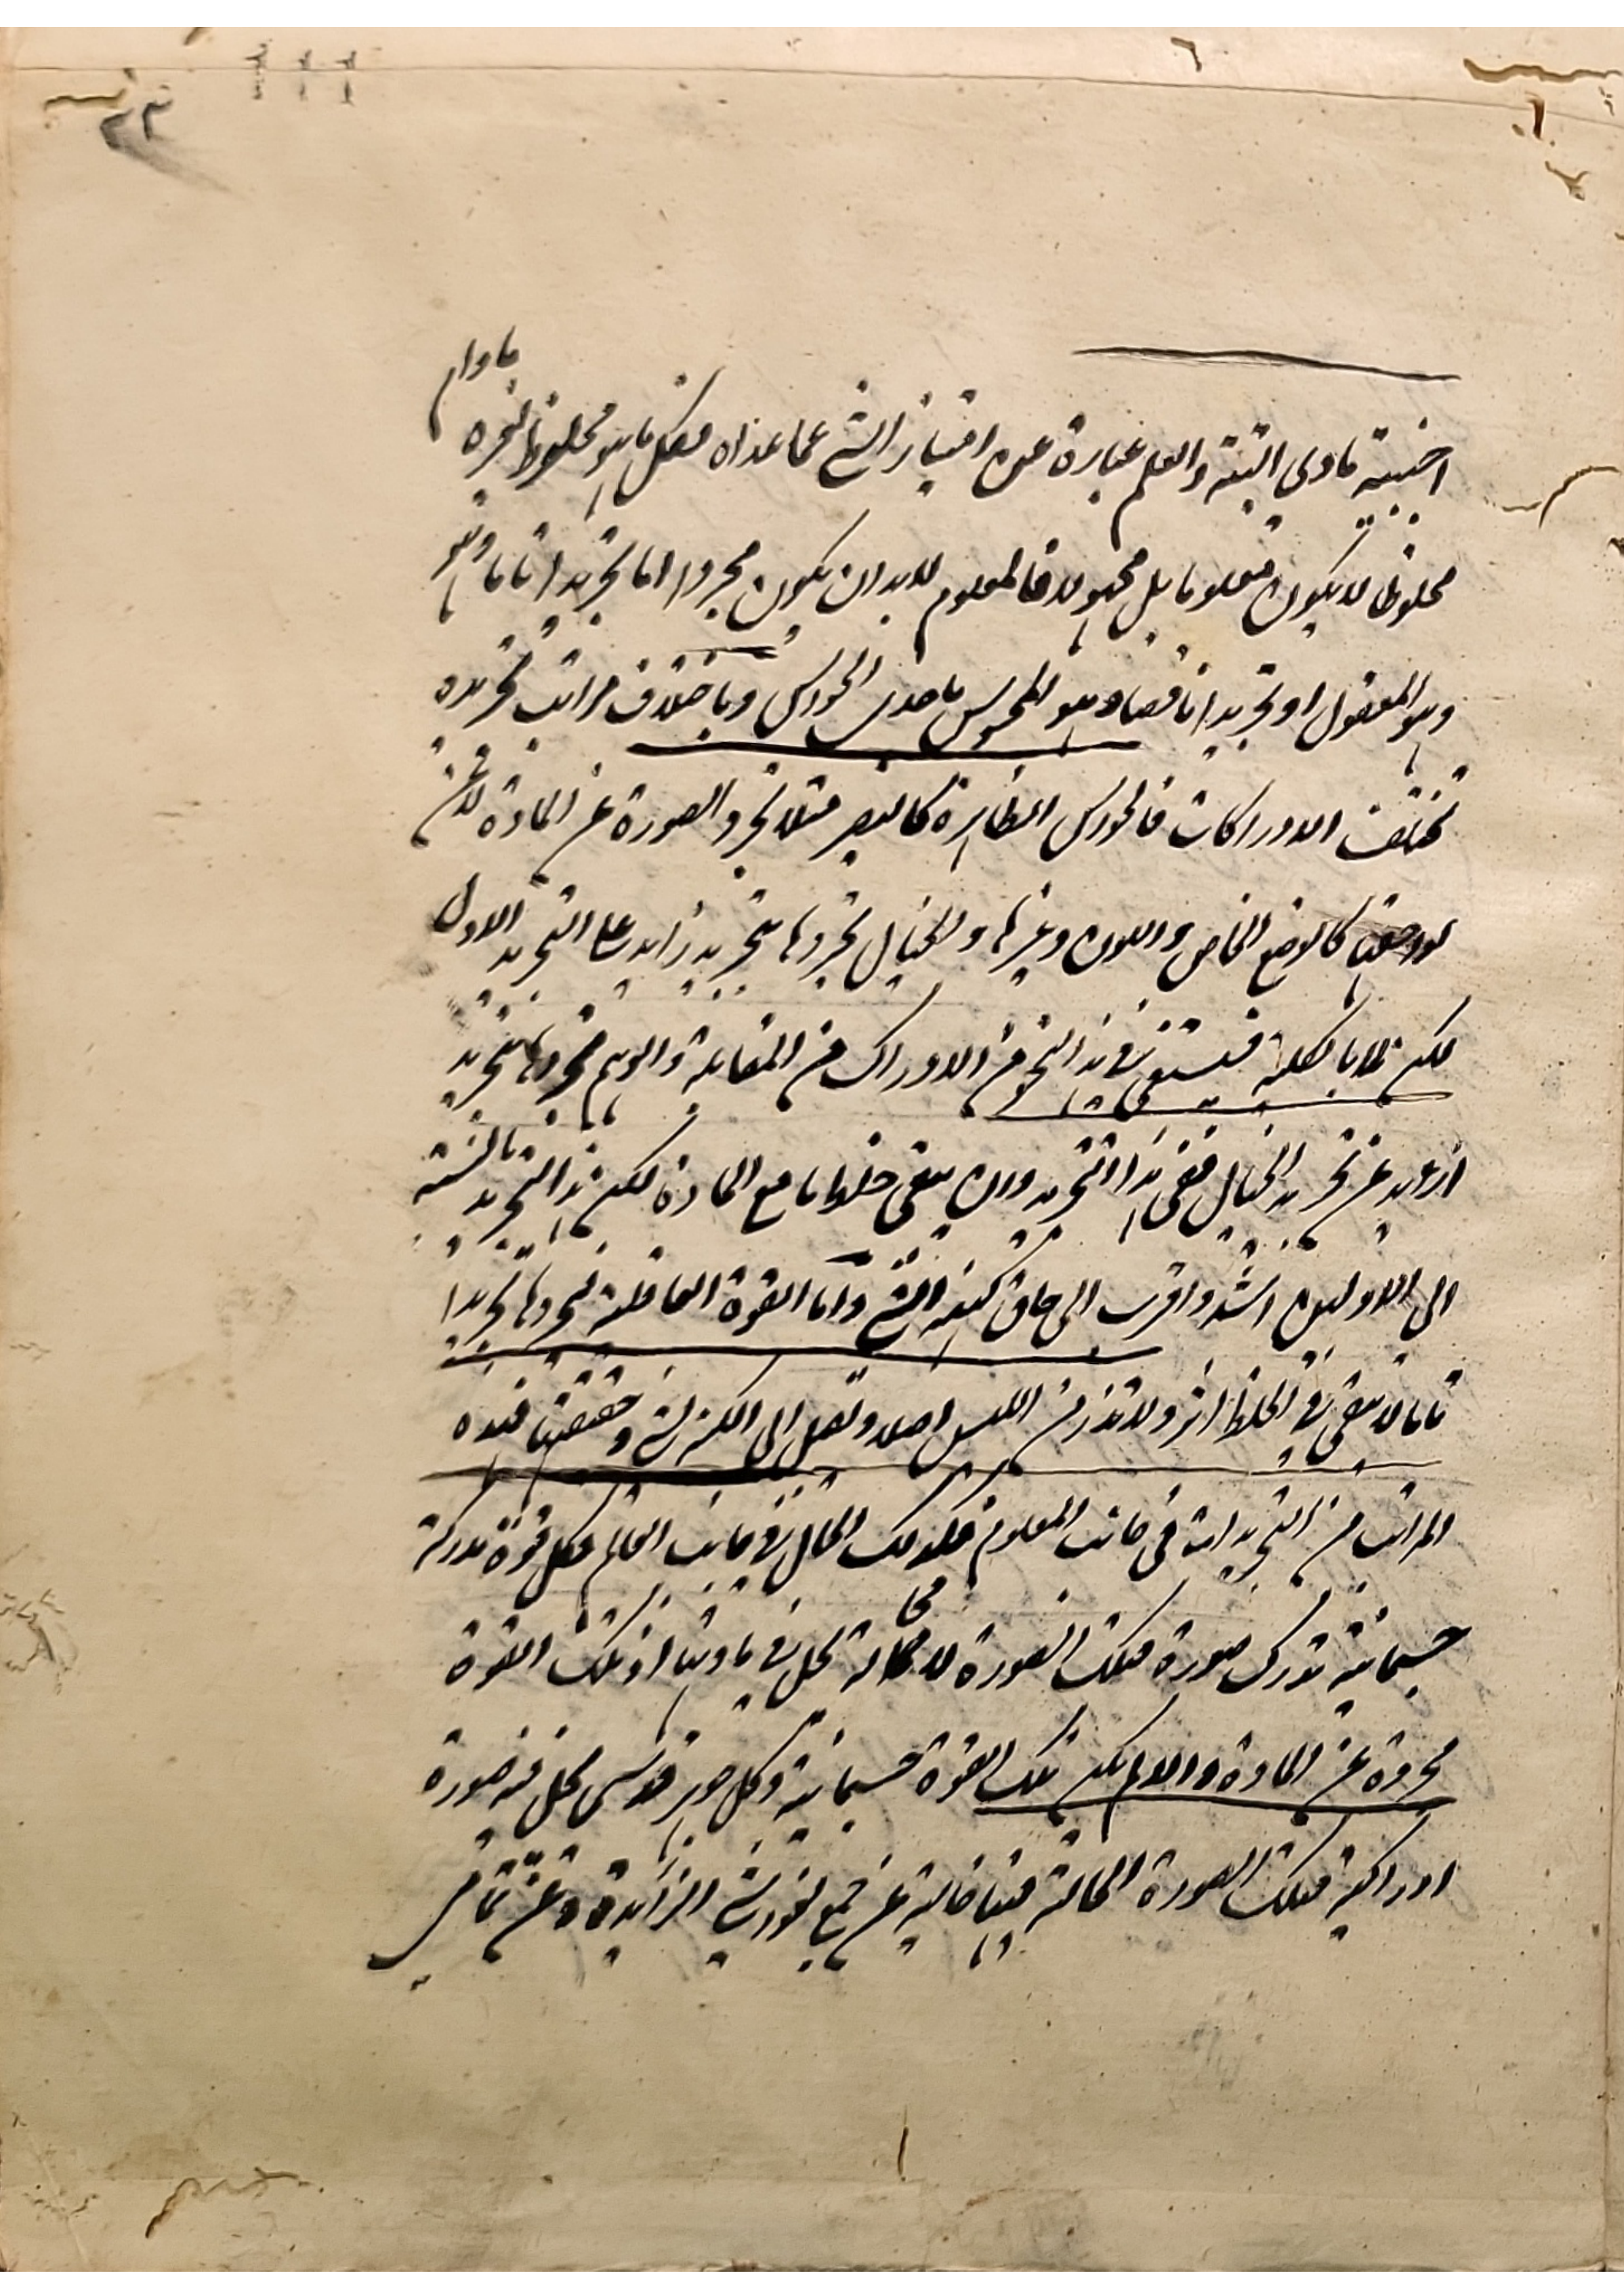 ٢٣
اجنبية مادي البتة والعلم عبارة عن امتياز الشئ عما عداه فكل ما هو مخلوط بغيره مادام
مخلوطا لا يكون معلوما بل مجهولا فالمعلوم لابد ان يكون مجردا اما تجريدا تاما وهو
وهو المعقول او تجريدا ناقصا وهو المحسوس باحدى الحواس وباختلاف مراتب تجريده
تختلف الادراكات فالحواس الظاهرة كالبصر مثلا تجرد الصورة عن المادة لا عن
لواحقها كالوضع الخاص واللون وغيرها والخيال تجردها بتجريد زايد على التجريد الاول
لكن لا بالكلية فيستغنى في هذا النحو من الادراك من المقابلة والوهم تجردها بتجريد
ازيد عن تجريد الخيال ففي هذا التجريد وان يبقى خلط ما مع المادة لكن هذا التجريد بالنسبة
الى الاولين اشد واقرب الى حاق كنه الشئ واما القوة العاقلة تجردها تجريدا
تاما لا يبقى في الخلط اثر ولا تذر من اللبس اصلا وتصل الى الكنه الشئ وحقيقتها فهذه
المراتب من التجريدات في جانب المعلوم فكذلك الحال في جانب العالم فكل قوة مدركة
جسمانية تدرك صورة فتلك الصورة لا محالة تحل في مادتها اذ تلك القوة
مجردة عن المادة والا لم يكن تلك القوة جسمانية وكل جوهر قدسي يحل فيه صورة
ادراكية فتلك الصورة الحالة فيها خالية عن جميع الغواشي الزائدة وعن تماس